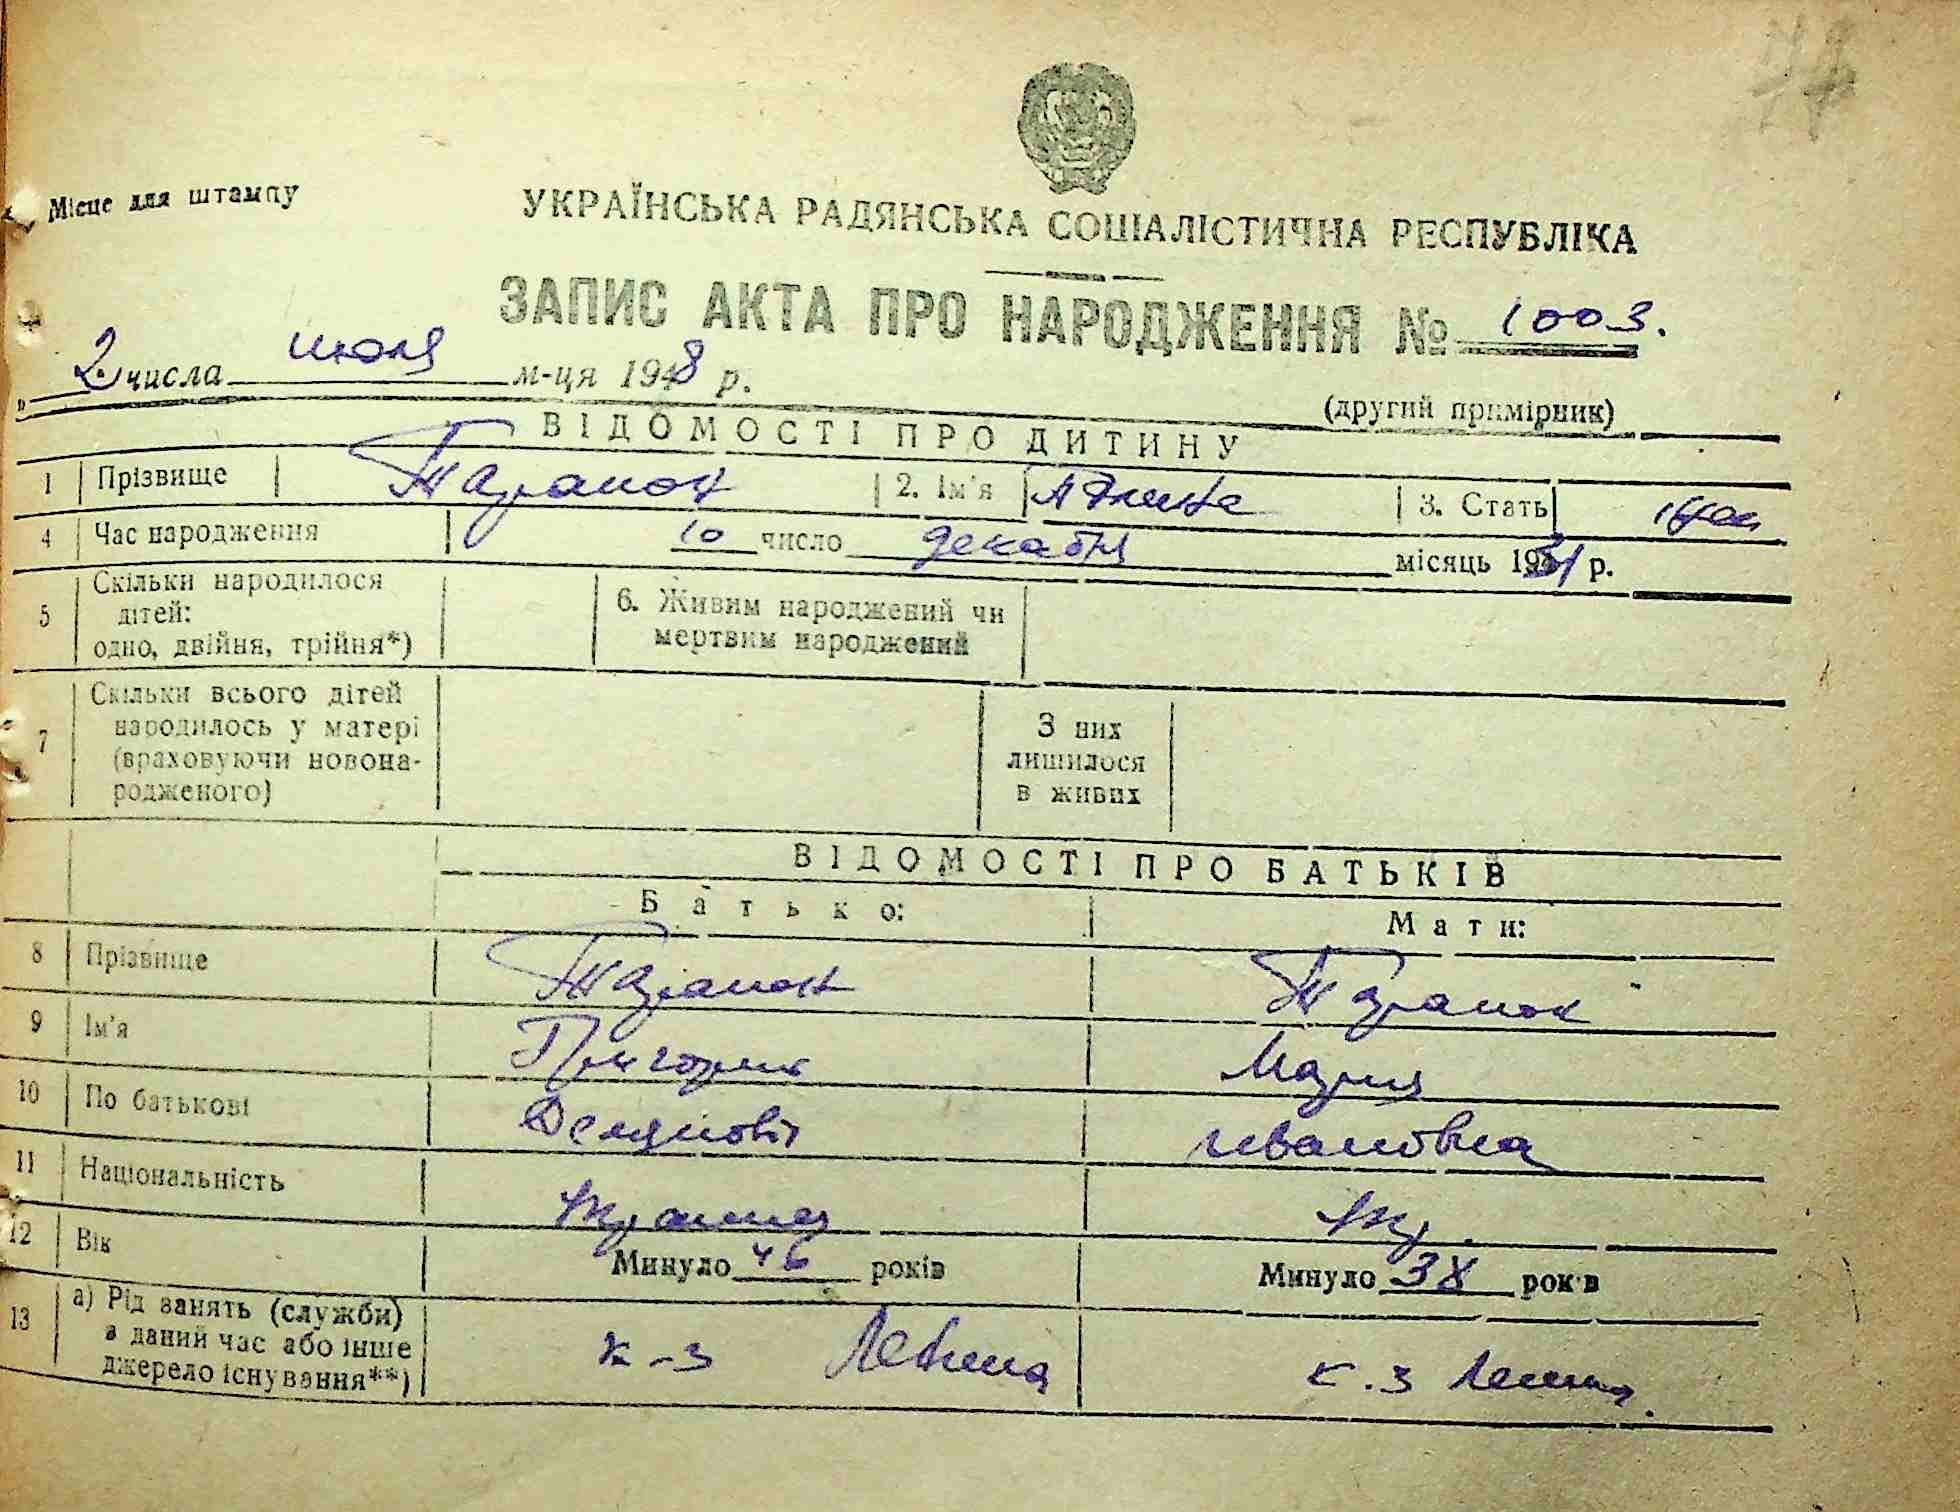 Місце для штампу
УКРАЇНСЬКА РАДЯНСЬКА СОЦІАЛІСТИЧНА РЕСПУБЛІКА
ЗАПИС АКТА ПРО НАРОДЖЕННЯ № 1003.
„ 2 числа июля м-ця 1948 р.
(другий примірник)
ВІДОМОСТІ ПРО ДИТИНУ
1 Прізвище Таранюк 2. Ім'я 3. Стать
4 Час народження 10 число декабря місяць 1931 р.
5 Скільки народилося дітей: одно, двійня, трійня*) 6. Живим народжений чи мертвим народжений
7 Скільки всього дітей народилось у матері (враховуючи новонародженого) З них лишилося в живих
ВІДОМОСТІ ПРО БАТЬКІВ
Батько: Мати:
8 Прізвище
9 Ім'я Григорий Мария
10 По батькові Ивановна
11 Національність Украинец Укр.
12 Вік Минуло 46 років Минуло 38 років
13 а) Рід занять (служби) в даний час або інше джерело існування**) к-з Ленина к.з Ленина.